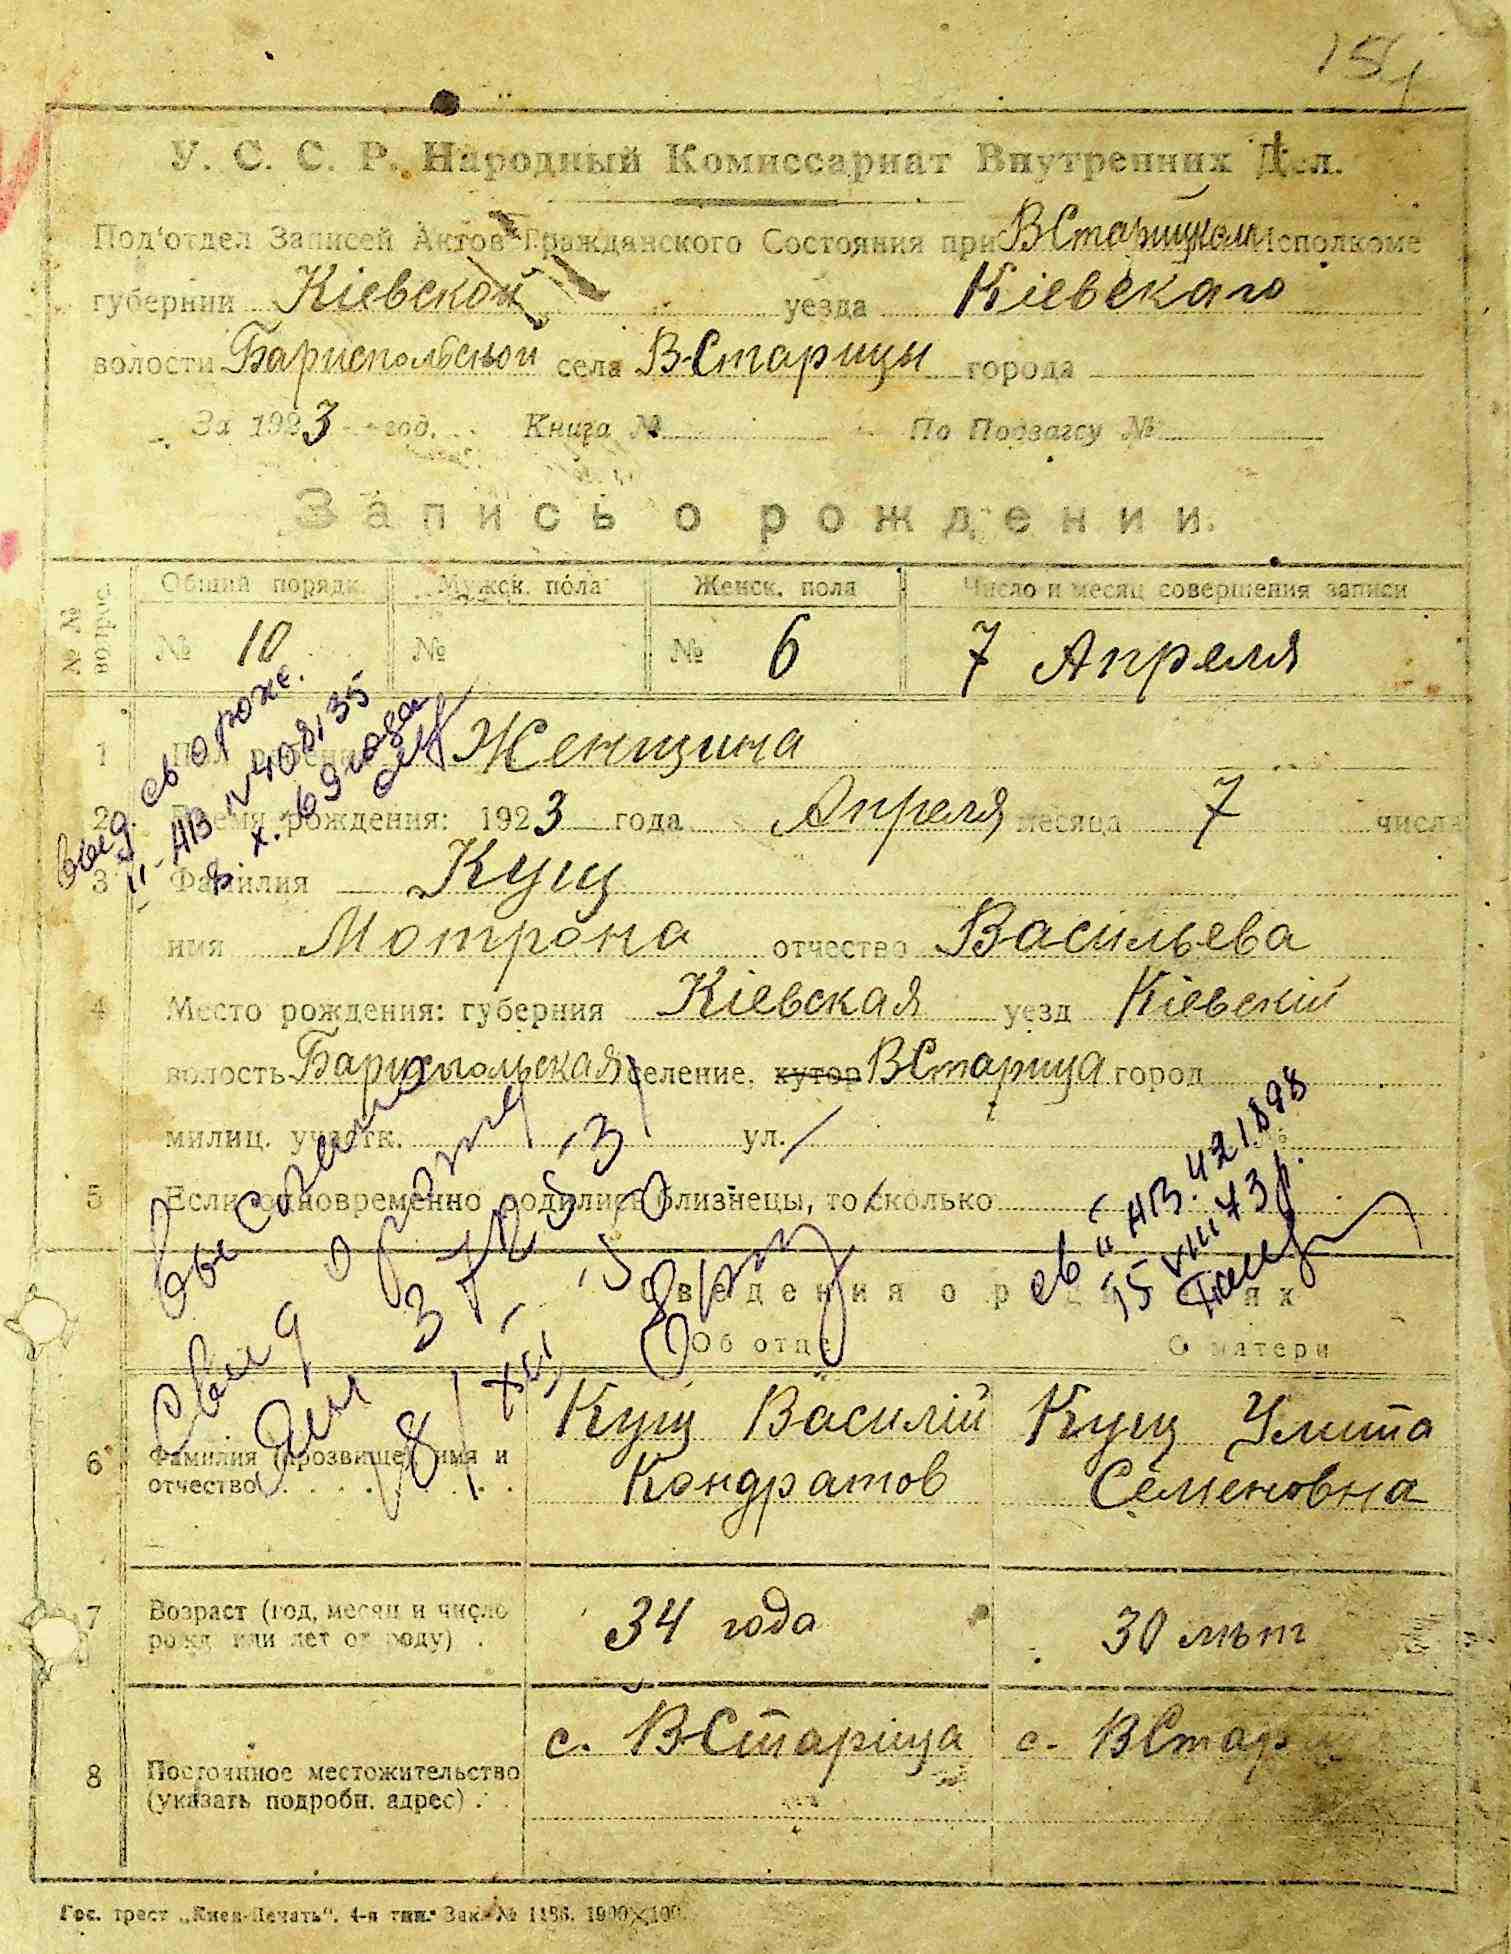 151
У. С. С. Р. Народный Комиссариат Внутренних Дел.
Под'отдел Записей Актов Гражданского Состояния при ВСтарицком Исполкоме
губернии Кіевской уезда Кіевскаго
волости Бариспольской села В-Старицы города
За 1923 год. Книга № По Подзагсу №
Запись о рождении.
№№ вопрос. Общий порядк. Мужск. пола Женск. пола Число и месяц совершения записи
№ 10 № № 6 7 Апреля
1 Пол ребенка Женщина
2 Время рождения: 1923 года Апреля месяца 7 числа
3 Фамилия Кущ
имя Мотрона отчество Васильева
4 Место рождения: губерния Кіевская уезд Кіевскій
волость Барисполькая селение, хутор ВСтарица город
милиц. участк. ул.
5 Если одновременно родились близнецы, то сколько
выд. св о рожд.
II-АВ №408135
8. X. 69 года
св II АВ. 421898
15 VIII 73 г.
выслано
свид о рожд
3
8/XII
Сведения о родителях
Об отце О матери
6 Фамилия (прозвище), имя и отчество Кущ Василій Кондратов Кущ Улита Семеновна
7 Возраст (год, месяц и число рожд. или лет от роду) 34 года 30 лѣт
8 Постоянное местожительство (указать подробн. адрес) с. В-Старіца с. ВСтар
Гос. трест „Киев-Печать“. 4-я тип. Зак. № 1186. 1900×100.